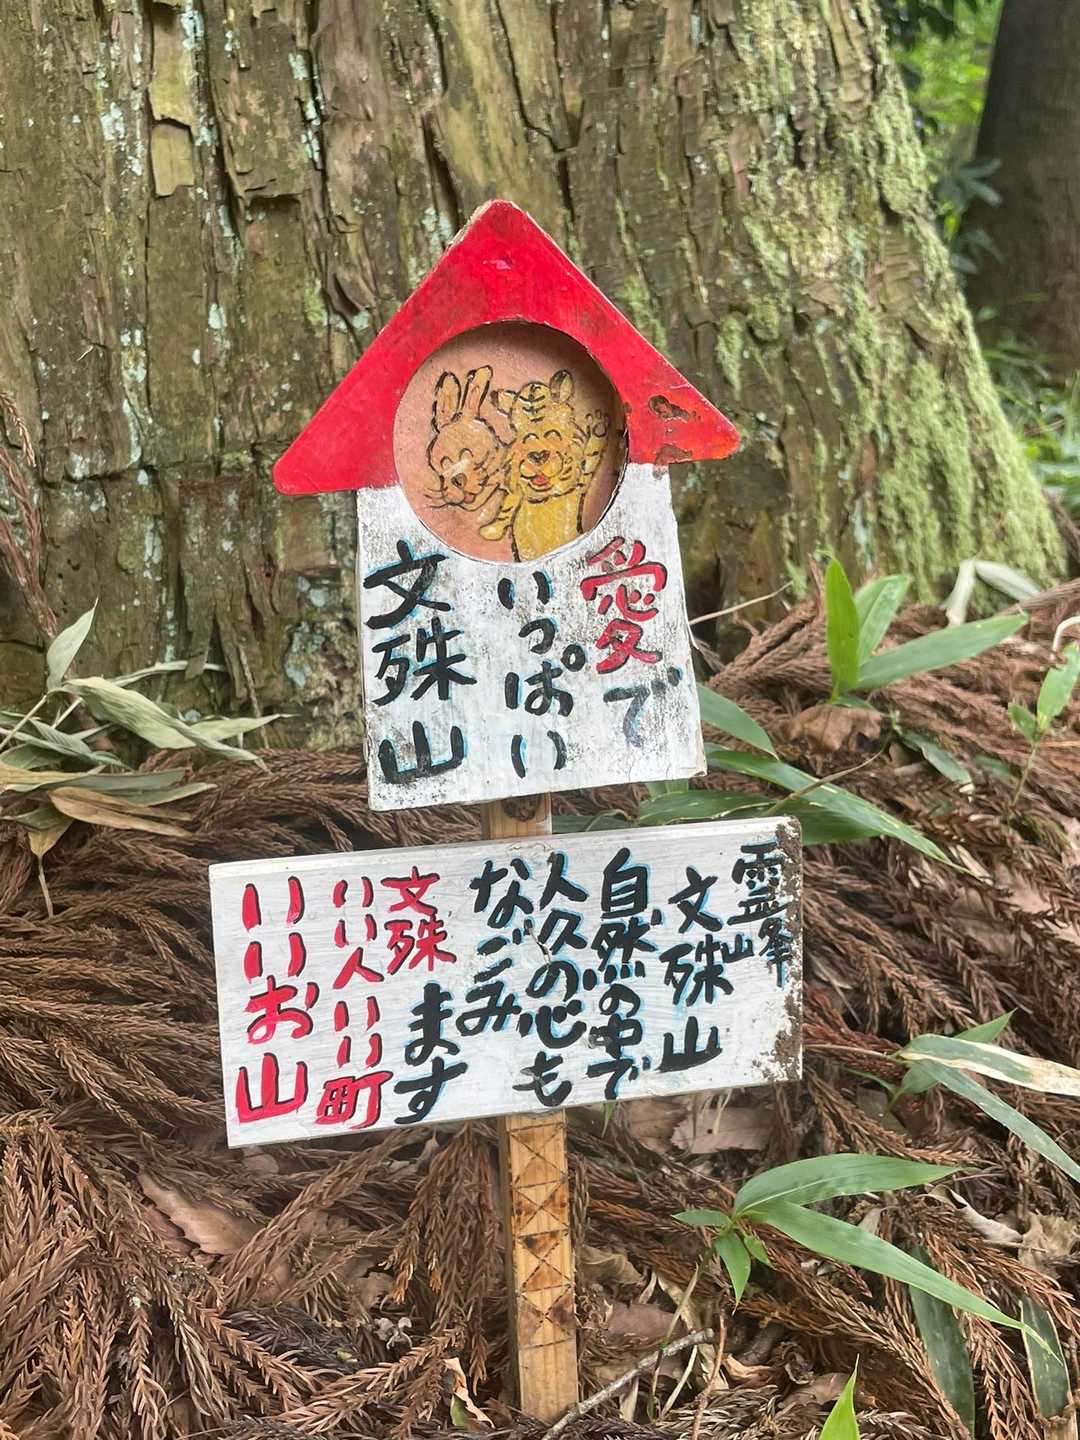 愛で
いっぱい
文殊山
霊峰
文殊山
自然の中で
人々の心も
なごみ
ます
文殊
いい人いい町
いいお山